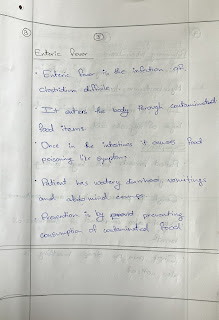 ②
③
Enteric fever
• Enteric fever is the infection of
clostridium difficile
• It enters the body through contaminated
food items
• Once in the intestines it causes food
poisoning like symptoms
• Patient has watery diarrhoea, vomitings
and abdominal
• Prevention is by preventing
consumption of contaminated food